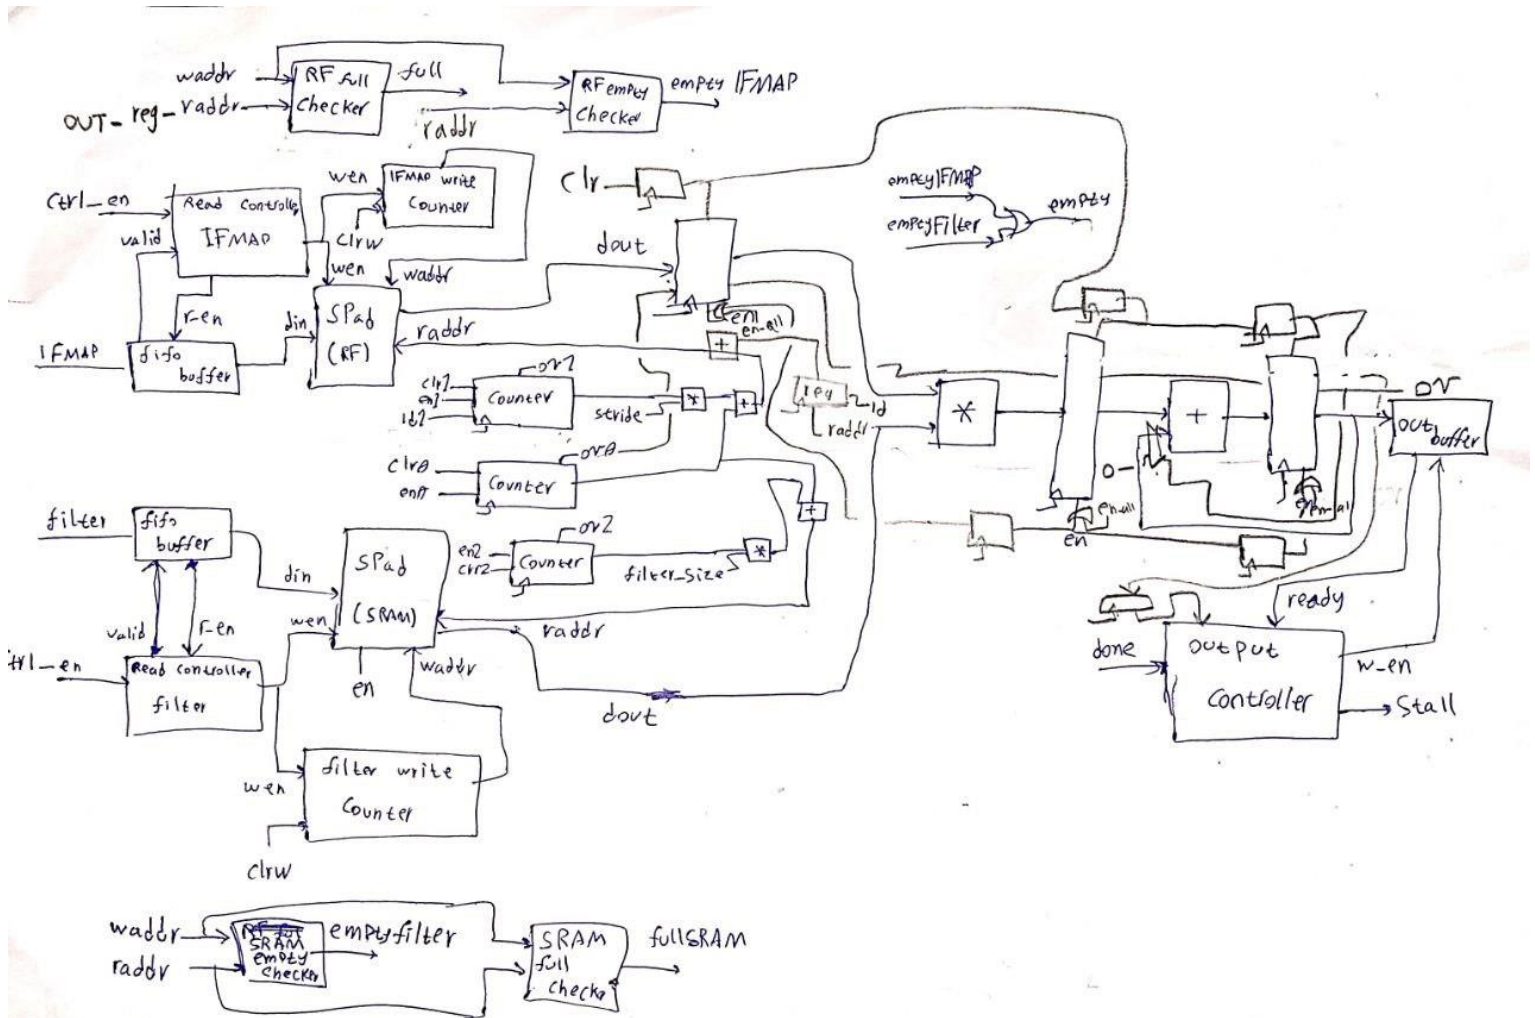 waddr
OUT_reg_raddr
RF full
checker
full
raddr
RF empty
checker
empty IFMAP
ctrl_en
valid
Read controller
IFMAP
wen
IFMAP write
counter
clrw
wen
waddr
r-en
IFMAP
fifo
buffer
din
SPad
(RF)
raddr
clr
dout
en1
en-all
+
emptyIFMAP
emptyFilter
empty
clr1
en1
ld1
counter
ov1
stride
*
+
reg
ld
raddr
clr0
en0
counter
ov0
en2
clr2
counter
ov2
filter_size
*
+
*
+
0
en
en-all
OV
out
buffer
filter
fifo
buffer
din
valid
r-en
wen
SPad
(SRAM)
raddr
waddr
en
trl_en
Read controller
filter
dout
wen
filter write
counter
clrw
ready
done
output
controller
w-en
Stall
waddr
raddr
SRAM
empty
checker
emptyfilter
SRAM
full
checke
fullSRAM